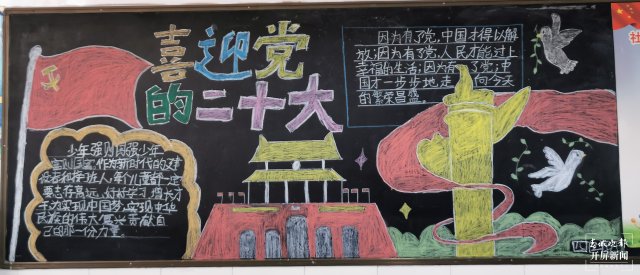 喜迎党
的二十大
因为有了党,中国才得以解
放;因为有了党,人民才能过上
幸福的生活;因为有了党;中
国才一步步地走向今天
的繁荣昌盛。
少年强则国强少年
富则国富作为新时代的建
设者和接班人,每个儿童都一定
要志存高远,好好学习 增长才
干,为实现中国梦,实现中华
民族的伟大复兴贡献自
己的那一份力量。
开屏新闻